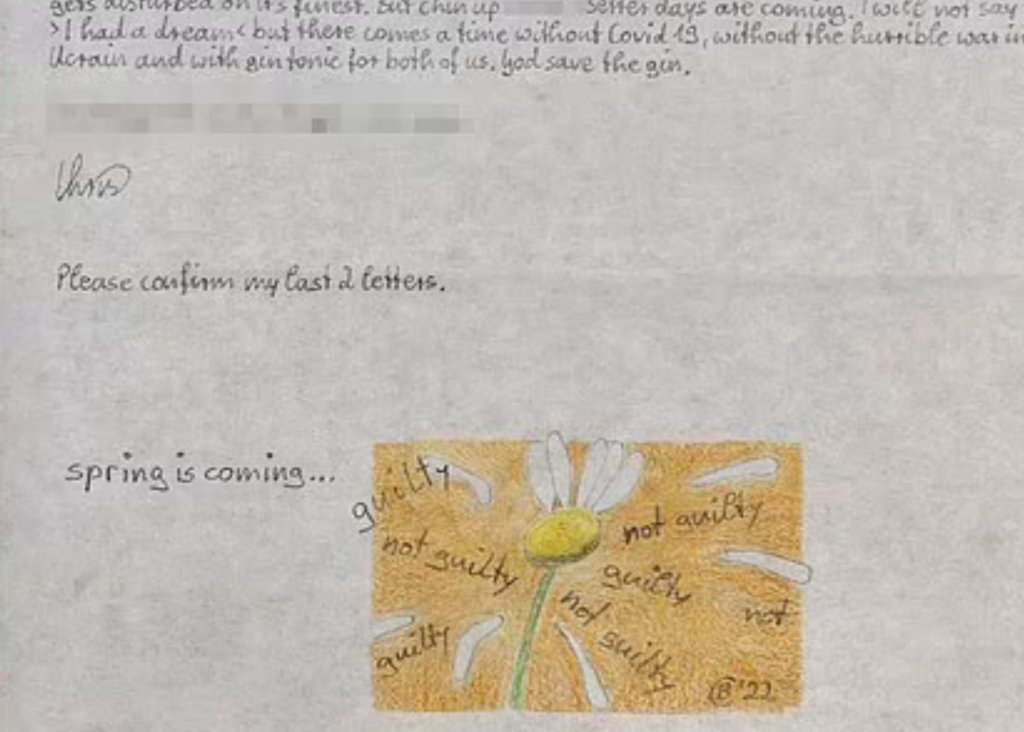 gets disturbed on it's finest. But chin up better days are coming. I will not say
>I had a dream< but there comes a time without Covid 19, without the hurrible war in
Ucrain and with gin tonic for both of us. God save the gin.
Chris
Please confirm my last 2 letters.
spring is coming...
guilty
not guilty
not guilty
guilty
not
not guilty
guilty
CB '22